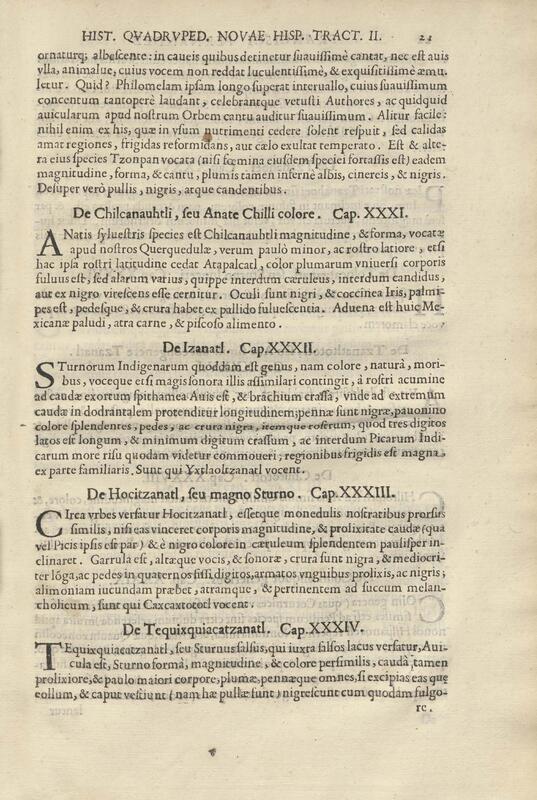 HIST. QVADRVPED. NOVAE HISP. TRACT. II. 21
ornaturq; albescente: in caueis quibus detinetur suauissimè cantat, nec est auis
vlla, animalue, cuius vocem non reddat luculentissimè, & exquisitissimè æmu-
letur. Quid? Philomelam ipsam longo superat interuallo, cuius suauissimum
concentum tantoperè laudant, celebrantque vetusti Authores, ac quidquid
auicularum apud nostrum Orbem cantu auditur suauissimum. Alitur facile:
nihil enim ex his, quæ in vsum nutrimenti cedere solent respuit, sed calidas
amat regiones, frigidas reformidans, aut cælo exultat temperato. Est & alte-
ra eius species Tzonpan vocata (nisi fœmina eiusdem speciei fortassis est) eadem
magnitudine, forma, & cantu, plumis tamen infernè albis, cinereis, & nigris.
Desuper verò pullis, nigris, atque candentibus.
De Chilcanauhtli, seu Anate Chilli colore. Cap. XXXI.
ANatis syluestris species est Chilcanauhtli magnitudine, & forma, vocatæ
apud nostros Querquedulæ, verum paulò minor, ac rostro latiore, etsi
hac ipsa rostri latitudine cedat Atapalcatl, color plumarum vniuersi corporis
fuluus est, sed alarum varius, quippe interdum cæruleus, interdum candidus,
aut ex nigro virescens esse cernitur. Oculi sunt nigri, & coccinea Iris, palmi-
pes est, pedesque, & crura habet ex pallido fuluescentia. Aduena est huic Me-
xicanæ paludi, atra carne, & piscoso alimento.
De Izanatl. Cap. XXXII.
STurnorum Indigenarum quoddam est genus, nam colore, naturâ, mori-
bus, voceque etsi magis sonora illis assimilari contingit, à rostri acumine
ad caudæ exortum spithamea Auis est, & brachium crassa, vnde ad extremum
caudæ in dodrantalem protenditur longitudinem; pennæ sunt nigræ, pauonino
colore splendentes, pedes, ac crura nigra, itemque rostrum, quod tres digitos
latos est longum, & minimum digitum crassum, ac interdum Picarum Indi-
carum more risu quodam videtur commoueri; regionibus frigidis est magna
ex parte familiaris. Sunt qui Yxtlaoltzanatl vocent.
De Hocitzanatl, seu magno Sturno. Cap. XXXIII.
CIrca vrbes versatur Hocitzanatl, essetque monedulis nostratibus prorsus
similis, nisi eas vinceret corporis magnitudine, & prolixitate caudæ (qua
vel Picis ipsis est par) & è nigro colore in cæruleum splendentem paulisper in-
clinaret. Garrula est, altæque vocis, & sonoræ, crura sunt nigra, & mediocri-
ter lõga, ac pedes in quaternos fissi digitos, armatos vnguibus prolixis, ac nigris;
alimoniam iucundam præbet, atramque, & pertinentem ad succum melan-
cholicum, sunt qui Caxcaxtototl vocent.
De Tequixquiacatzanatl. Cap. XXXIV.
TEquixquiacatzanatl, seu Sturnus salsus, qui iuxta salsos lacus versatur, Aui-
cula est, Sturno formâ, magnitudine, & colore persimilis, caudâ tamen
prolixiore, & paulo maiori corpore, plumæ, pennæque omnes, si excipias eas quę
collum, & caput vestiunt (nam hæ pullæ sunt) nigrescunt cum quodam fulgo-
re.